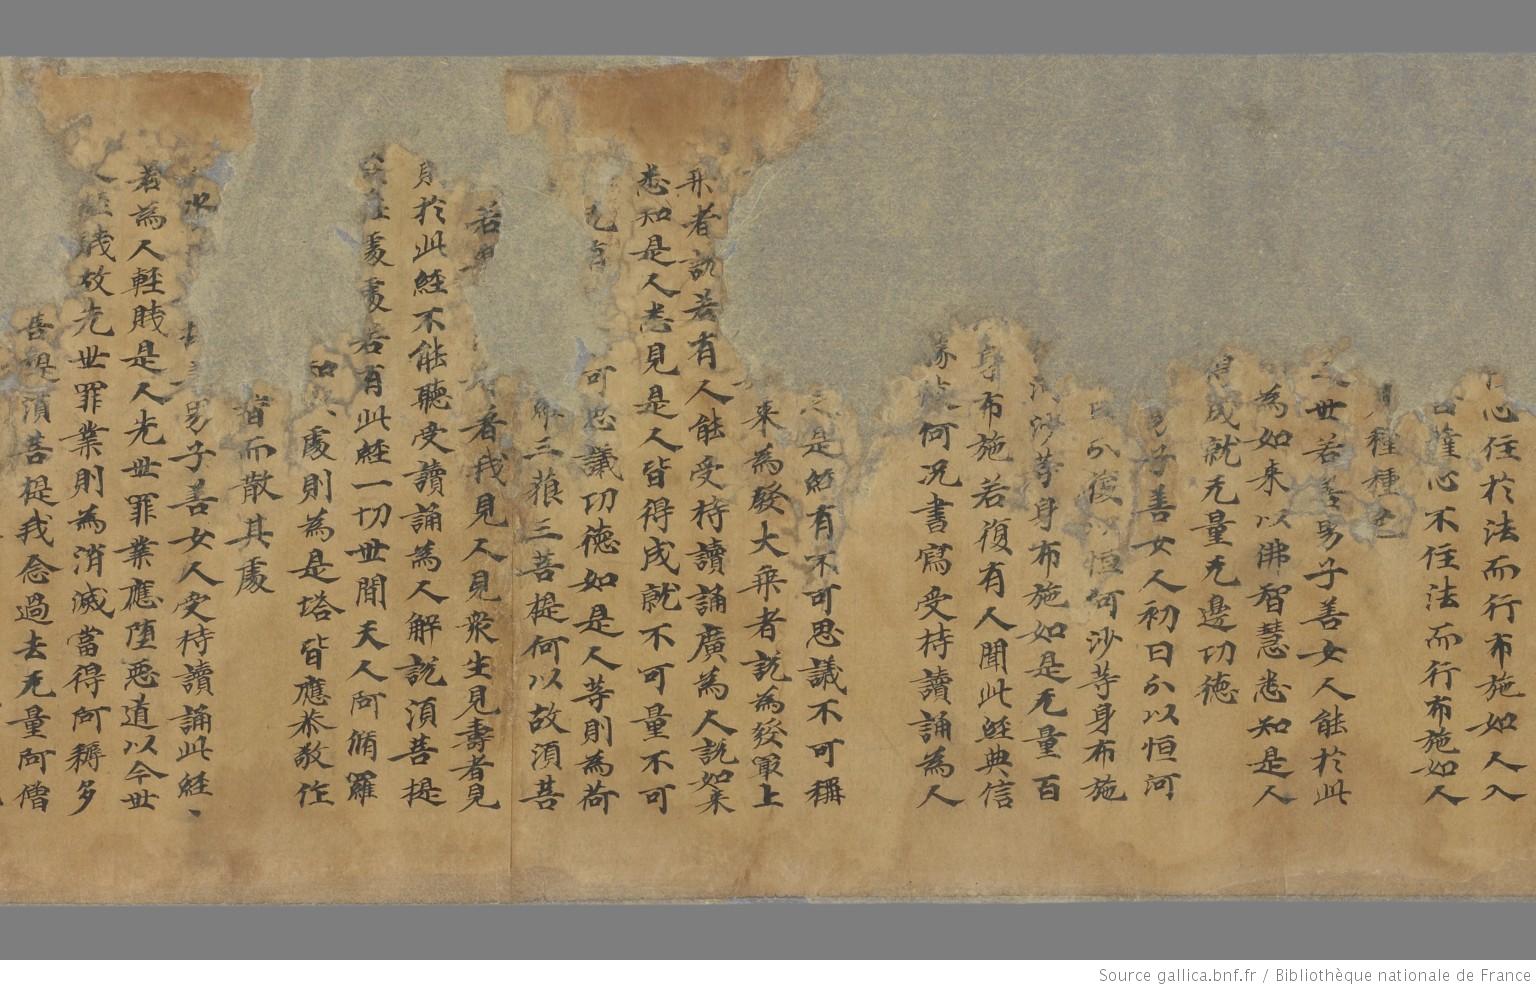 心住於法而行布施如人入
菩薩心不住法而行布施如人
種種色
世若善男子善女人能於此
為如来以佛智慧悉知是人
得成就无量无邊功徳
男子善女人初日分以恒河
日分復以恒河沙等身布施
河沙等身布施如是无量百
身布施若復有人聞此經典信
何况書寫受持讀誦為人
是經有不可思議不可稱
来為發大乗者說為發最上
乗者說若有人能受持讀誦廣為人說如来
悉知是人悉見是人皆得成就不可量不可
可思議功徳如是人等則為荷
三藐三菩提何以故湏菩
若 者我見人見衆生見壽者見
則於此經不能聽受讀誦為人解說湏菩提
在處處若有此經一切世間天人阿脩羅
知 處則為是塔皆應恭敬作
而散其處
男子善女人受持讀誦此經、
若為人輕賤是人先世罪業應堕惡道以今世
人輕賤故先世罪業則為消滅當得阿耨多
菩提湏菩提我念過去无量阿僧